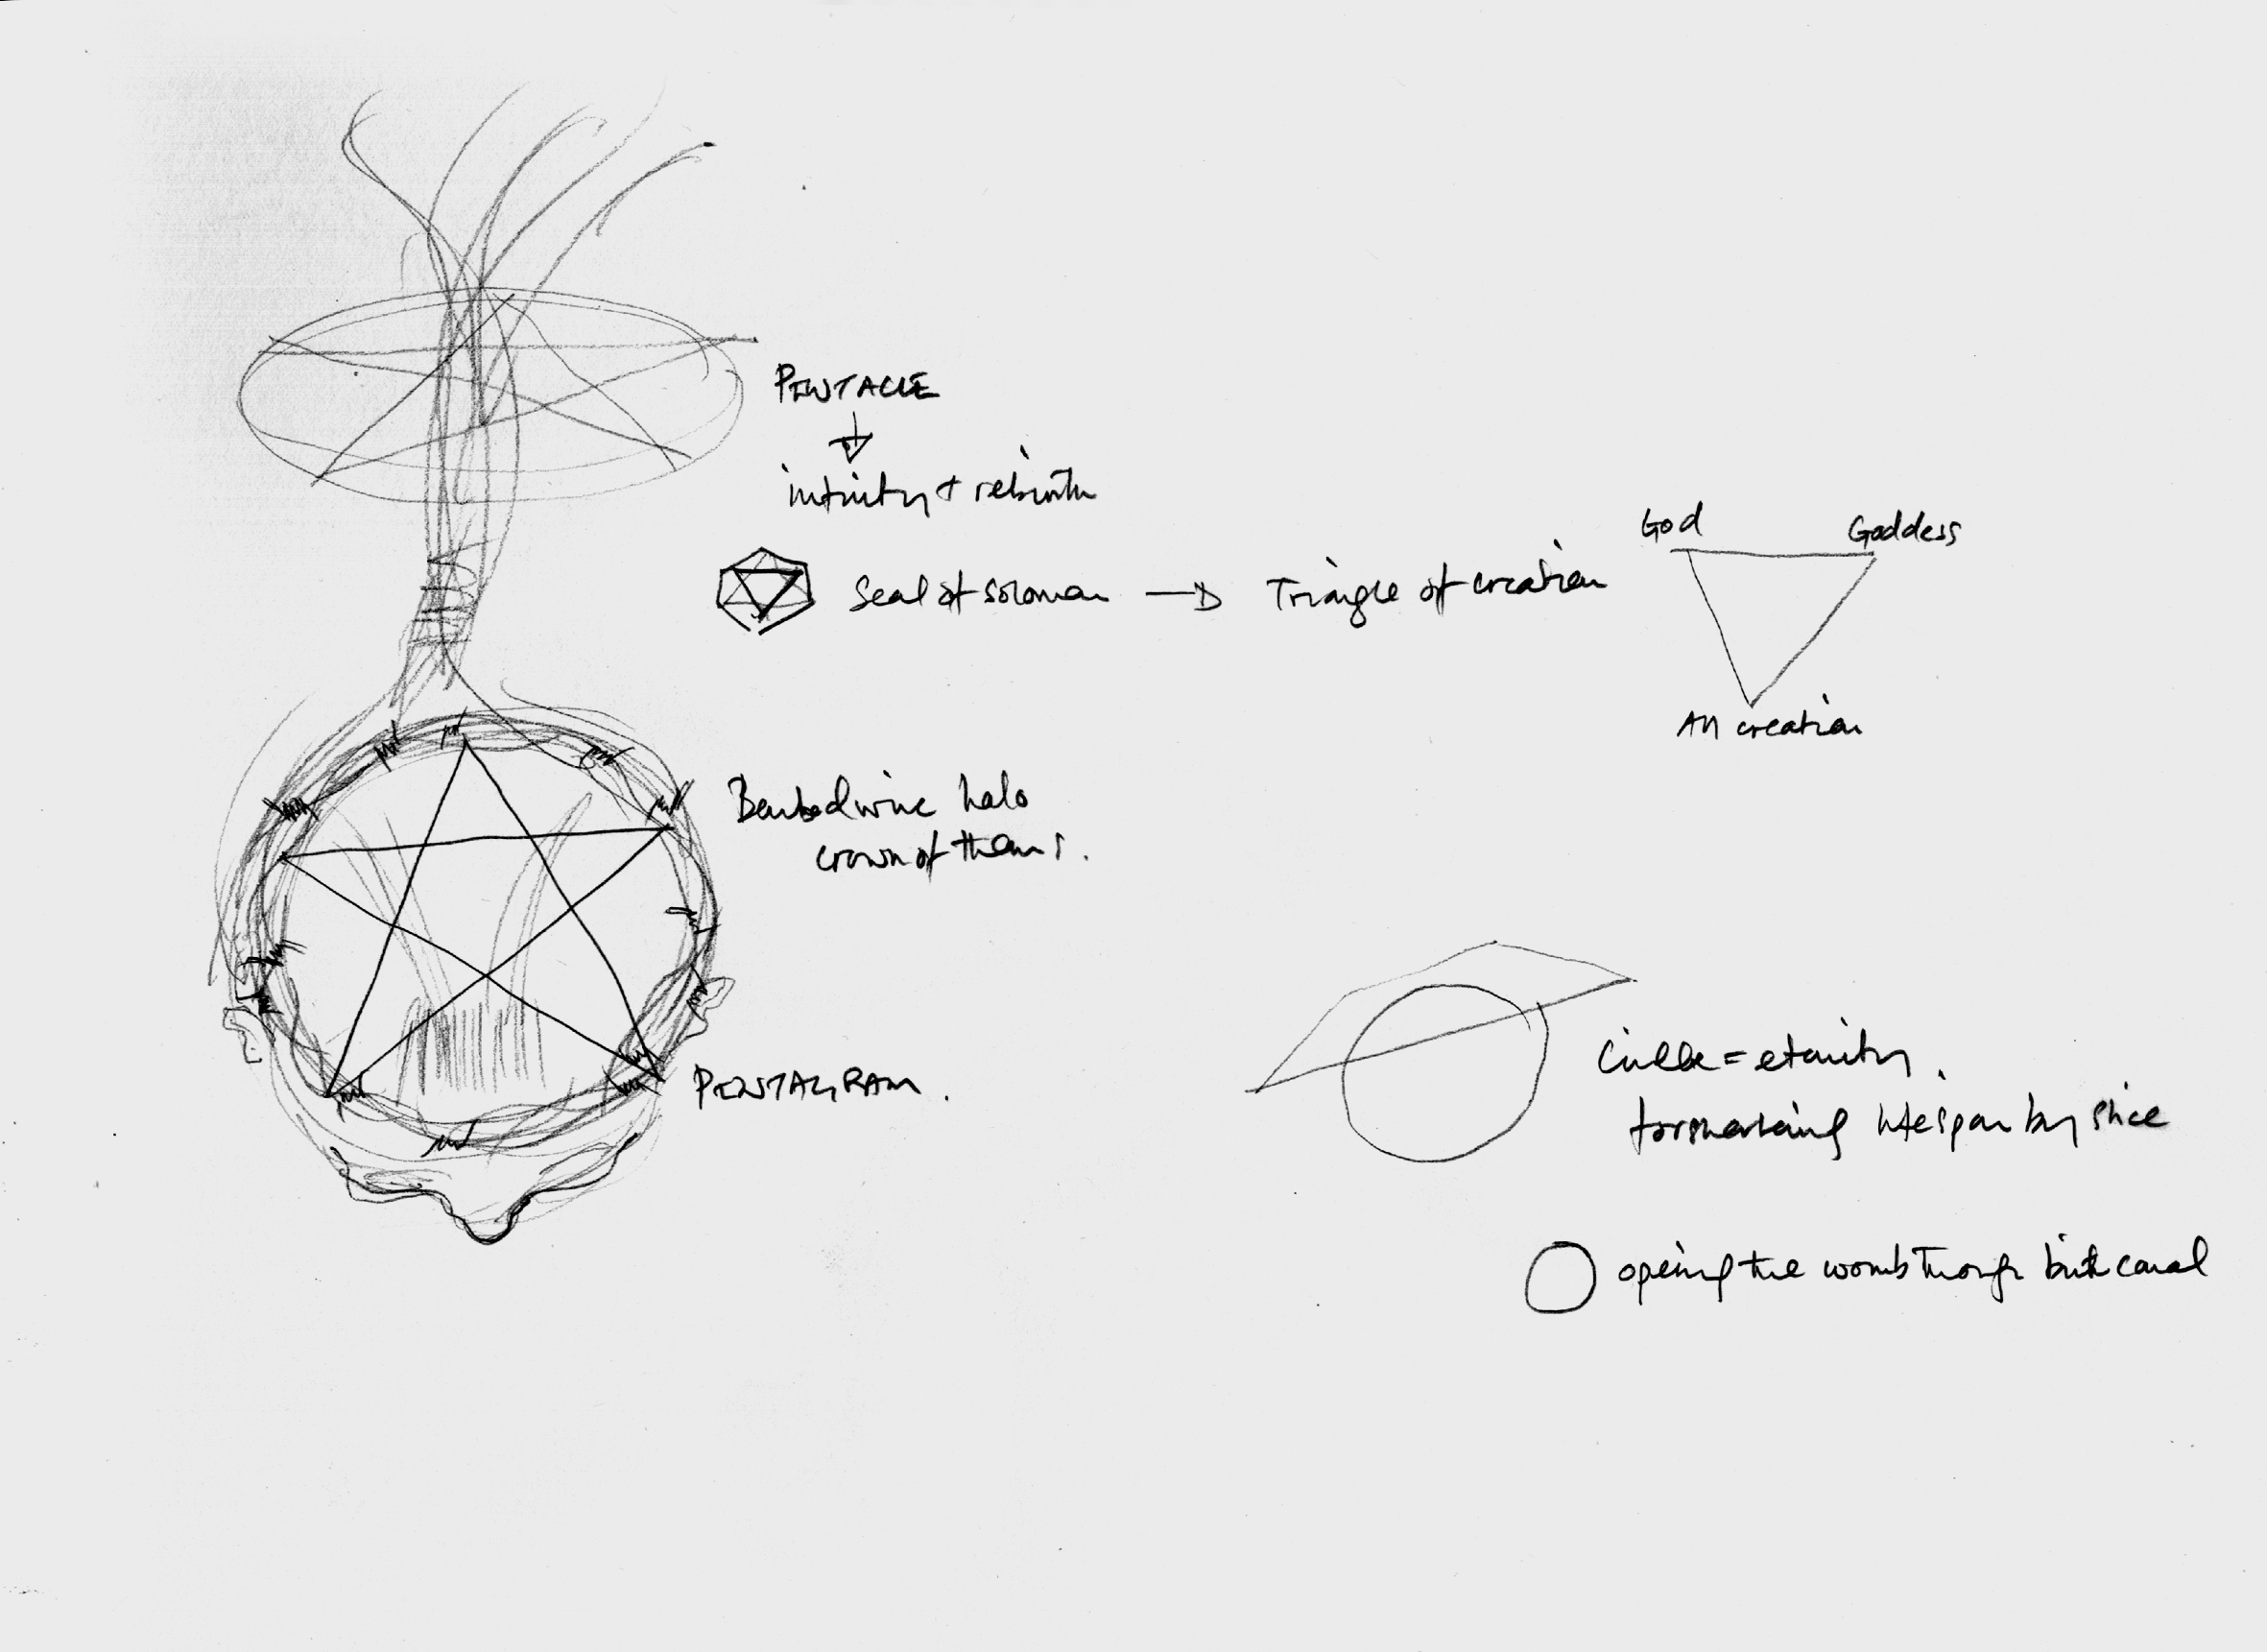 PENTACLE
infinity + rebirth
Seal of Solomon → Triangle of creation
God
Goddess
All creation
Barbed wire halo
crown of thorns.
PENTAGRAM.
Circle = eternity.
lifespan by slice
opening the womb through birth canal